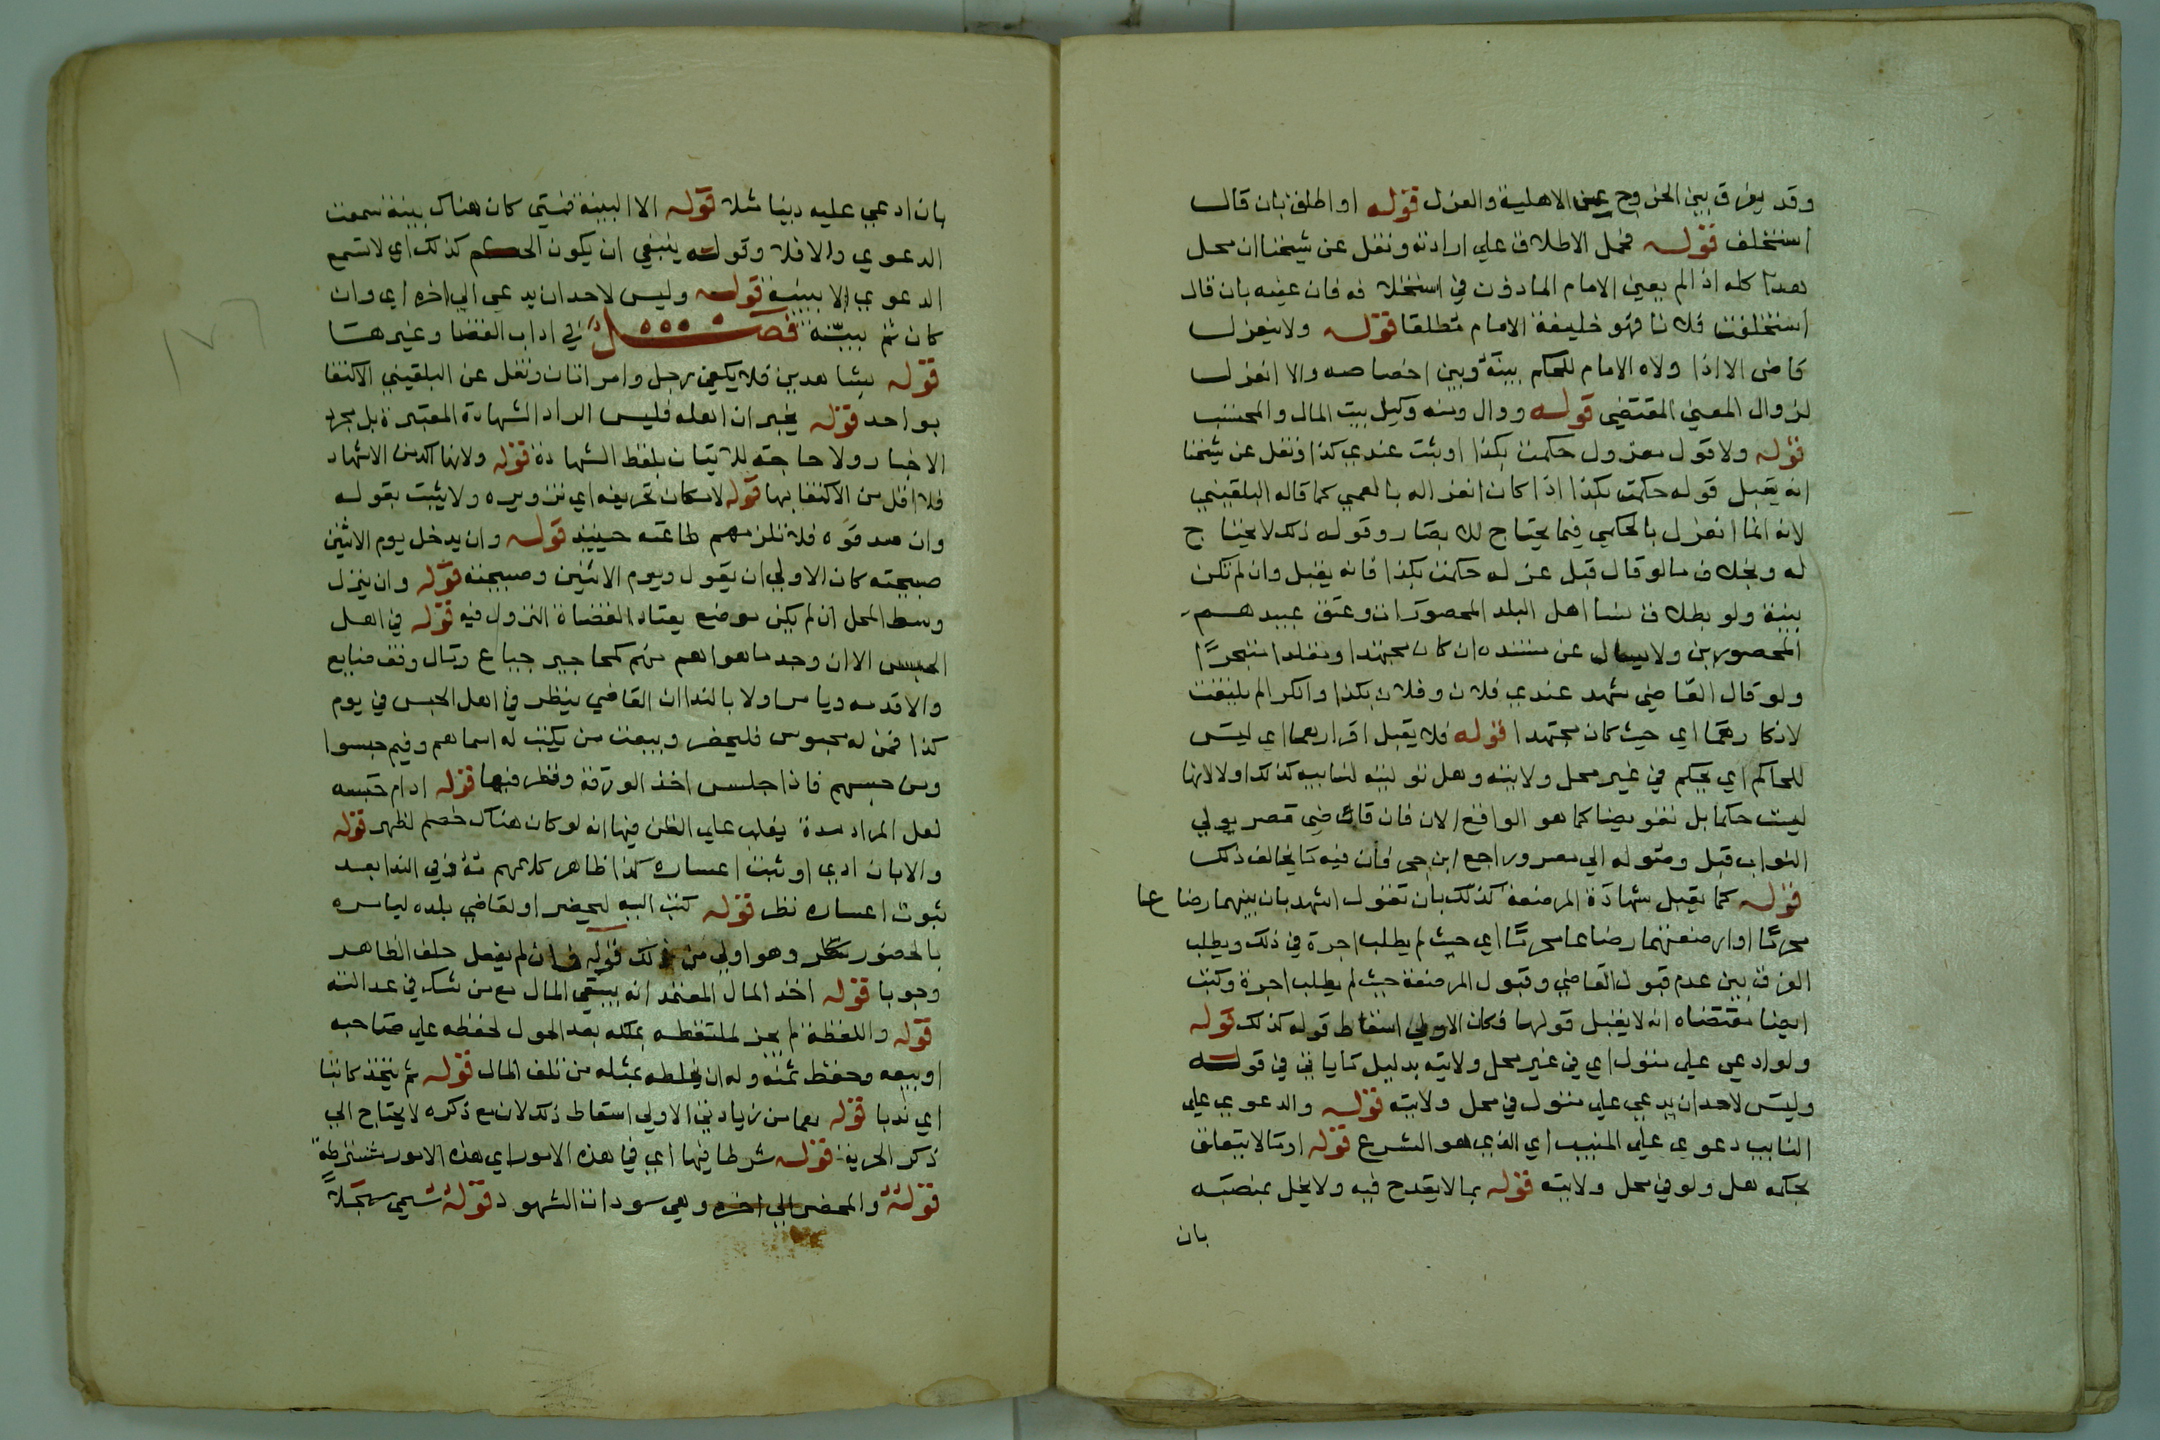 وقد يفرق بين الخروج عن الاهلية والعزل قوله او اطلق بان قال
استخلف قوله فحمل الاطلاق علي ارادته ونقل عن شيخنا ان محل
هدا كله اذا لم يعين الامام الماذون في استخلافه فان عينه بان قال
استخلفت فلانا فهو خليفة الامام مطلقا قوله ولا ينعزل
قاضى الا اذا ولاه الامام للحكم بينه وبين اخصامه والا انعزل
لزوال المعنى المقتضى قوله ووال ومنه وكيل بيت المال والمحتسب
قوله ولا قول معزول حكمت بكذا او ثبت عندي كذا ونقل عن شيخنا
انه يقبل قوله حكمت بكذا اذا كان انعزاله بالعمي كما قاله البلقيني
لانه انما انعزل بالعمي فيما يحتاج للابصار وقوله ذلك لا يحتاج
له وبخلاف ما لو قال قبل عزله حكمت بكذا فانه يقبل وان لم تكن
بينة ولو بطلاق نسا اهل البلد المحصورات وعتق عبيدهم
المحصورين ولا يسال عن مستنده ان كان مجتهدا او مقلدا متبحرًا
ولو قال القاضي شهد عندي فلان وفلان بكذا وانكرا لم يلتفت
لانكارهما اي حيث كان مجتهدا قوله فلا يقبل اقرارهما اي ليس
للحاكم اي يحكم في غير محل ولايته وهل توليته لنايبه كذلك او لا لانها
ليست حكما بل تفويضا كما هو الواقع الان فان قاضى مصر يولي
النواب قبل وصوله الي مصر وراجع ابن حجر فان فيه ما يخالف ذلك
قوله كما تقبل شهادة المرضعة كذلك بان تقول اشهد بان بينهما رضاعا
محرمًا او ارضعتهما رضاعا محرمًا اي حيث لم يطلب اجرة في ذلك ويطلب
الفرق بين عدم قبول القاضي وقبول المرضعة حيث لم يطلب اجرة وكتب
ايضا مقتضاه انه لا يقبل قولها فكان الاولي اسقاط قوله كذلك قوله
ولو ادعي علي متول اي في غير محل ولايته بدليل ما ياتي في قوله
وليس لاحد ان يدعي علي متول في محل ولايته قوله والدعوي علي
النايب دعوي علي المنيب اي الذي هو الشرع قوله او ما لا يتعلق
بحكمه هل ولو في محل ولايته قوله بما لا يقدح فيه ولا يخل بمنصبه
بان
بان ادعي عليه دينا مثلا قوله الا البينة فمتي كان هناك بينة سمعت
الدعوي والا فلا وقوله ينبغي ان يكون الحكم كذلك اي لا تسمع
الدعوي الا ببينة قوله وليس لاحد ان يدعي الي اخره اي وان
كان ثم بينة فصل في اداب القضا وغيرها
قوله بشاهدين فلا يكفي رجل وامراتان ونقل عن البلقيني الاكتفا
بواحد قوله يخبران اهله فليس المراد الشهادة المعتبرة بل مجرد
الاخبار ولا حاجة للاتيان بلفظ الشهادة قوله ولانها اكد من الاشهاد
فلا اقل من الاكتفا بها قوله لامكان تحريفه اي تزويره ولا يثبت بقوله
وان صدقوه فلا تلزمهم طاعته حينيذ قوله وان يدخل يوم الاثنين
صبيحته كان الاولي ان يقول ويوم الاثنين وصبيحته قوله وان ينزل
وسط المحل ان لم يكن موضع يعتاد القضاة النزول فيه قوله في اهل
الحبس الا ان وجد ما هو اهم منهم كمحاجير جياع ومال وقف ضايع
والا قدمه ويامر اولا بالندا ان القاضي ينظر في اهل الحبس في يوم
كذا فمن له محبوس فليحضر ويبعث من يكتب له اسماهم وفيم حبسوا
ومن حبسهم فاذا جلس اخذ الورقة ونظر فيها قوله ادام حبسه
لعل المراد مدة يغلب علي الظن فيها انه لو كان هناك خصم لظهر قوله
والا بان ادي او ثبت اعساره كذا ظاهر كلامهم وفي الندا بعد
ثبوت اعساره نظر قوله كتب اليه ليحضر او لقاضي بلده ليامره
بالحضور وهو اولي من ذلك قوله فان لم يفعل حلف الظاهر
وجوبا قوله اخذ المال المعتمد انه يبقي المال مع من شك في عدالته
قوله واللقطة لم يجز لملتقطه بملكه بعد الحول لحفظه علي صاحبه
او بيعه وحفظ ثمنه وله ان يخلطه بمثله من تلف المال قوله ثم يتخذ كاتبا
اي ندبا قوله هما من زيادتي الاولي اسقاط ذلك لان مع ذكره لا يحتاج الي
ذكر الحرية قوله شرطا فيها اي في هذه الامور اي هذه الامور مشترطة
قوله والمحضر الي اخره وهي سودات الشهود قوله سمي سجلاً